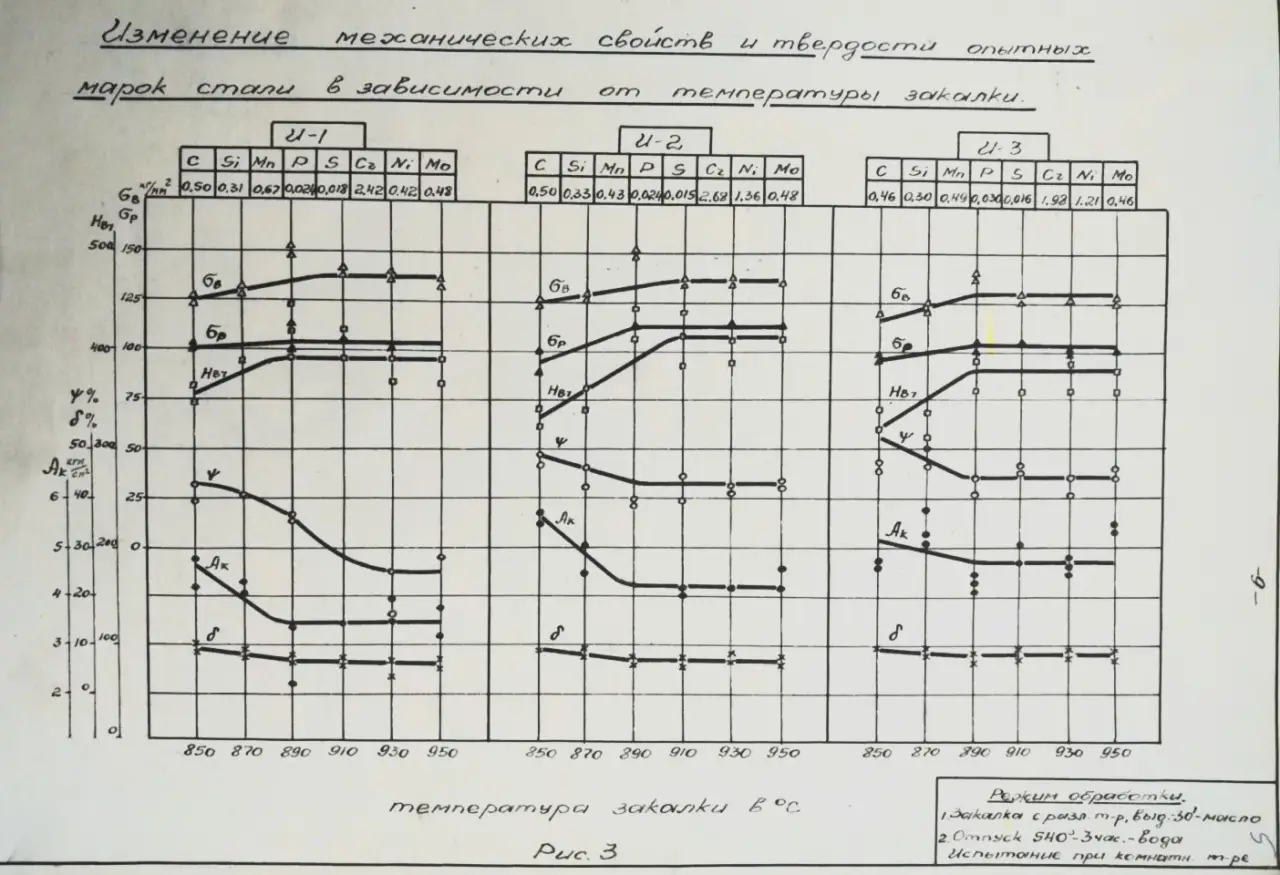 Изменение механических свойств и твердости опытных
марок стали в зависимости от температуры закалки.
И-1
C Si Mn P S Cr Ni Mo
0.50 0.31 0.67 0.024 0.018 2.42 0.42 0.48
И-2
C Si Mn P S Cr Ni Mo
0.50 0.33 0.43 0.024 0.015 2.68 1.36 0.48
И-3
C Si Mn P S Cr Ni Mo
0.46 0.30 0.49 0.030 0.016 1.92 1.21 0.46
σв кг/мм²
σр
Нв₇
500 150
125
400 100
ψ%
75
δ%
50 300 50
Ак кгм/см²
6 40 25
5 30 200 0
4 20
3 10 100
2 0
0
σв
σр
Нв₇
ψ
Ак
δ
σв
σр
Нв₇
ψ
Ак
δ
σв
σр
Нв₇
ψ
Ак
δ
850 870 890 910 930 950
850 870 890 910 930 950
850 870 890 910 930 950
температура закалки в °С
Рис. 3
-9-
Режим обработки.
1. Закалка с разл. т-р, выд.-30'-масло
2. Отпуск 540°-3час.-вода
Испытание при комнатн. т-ре